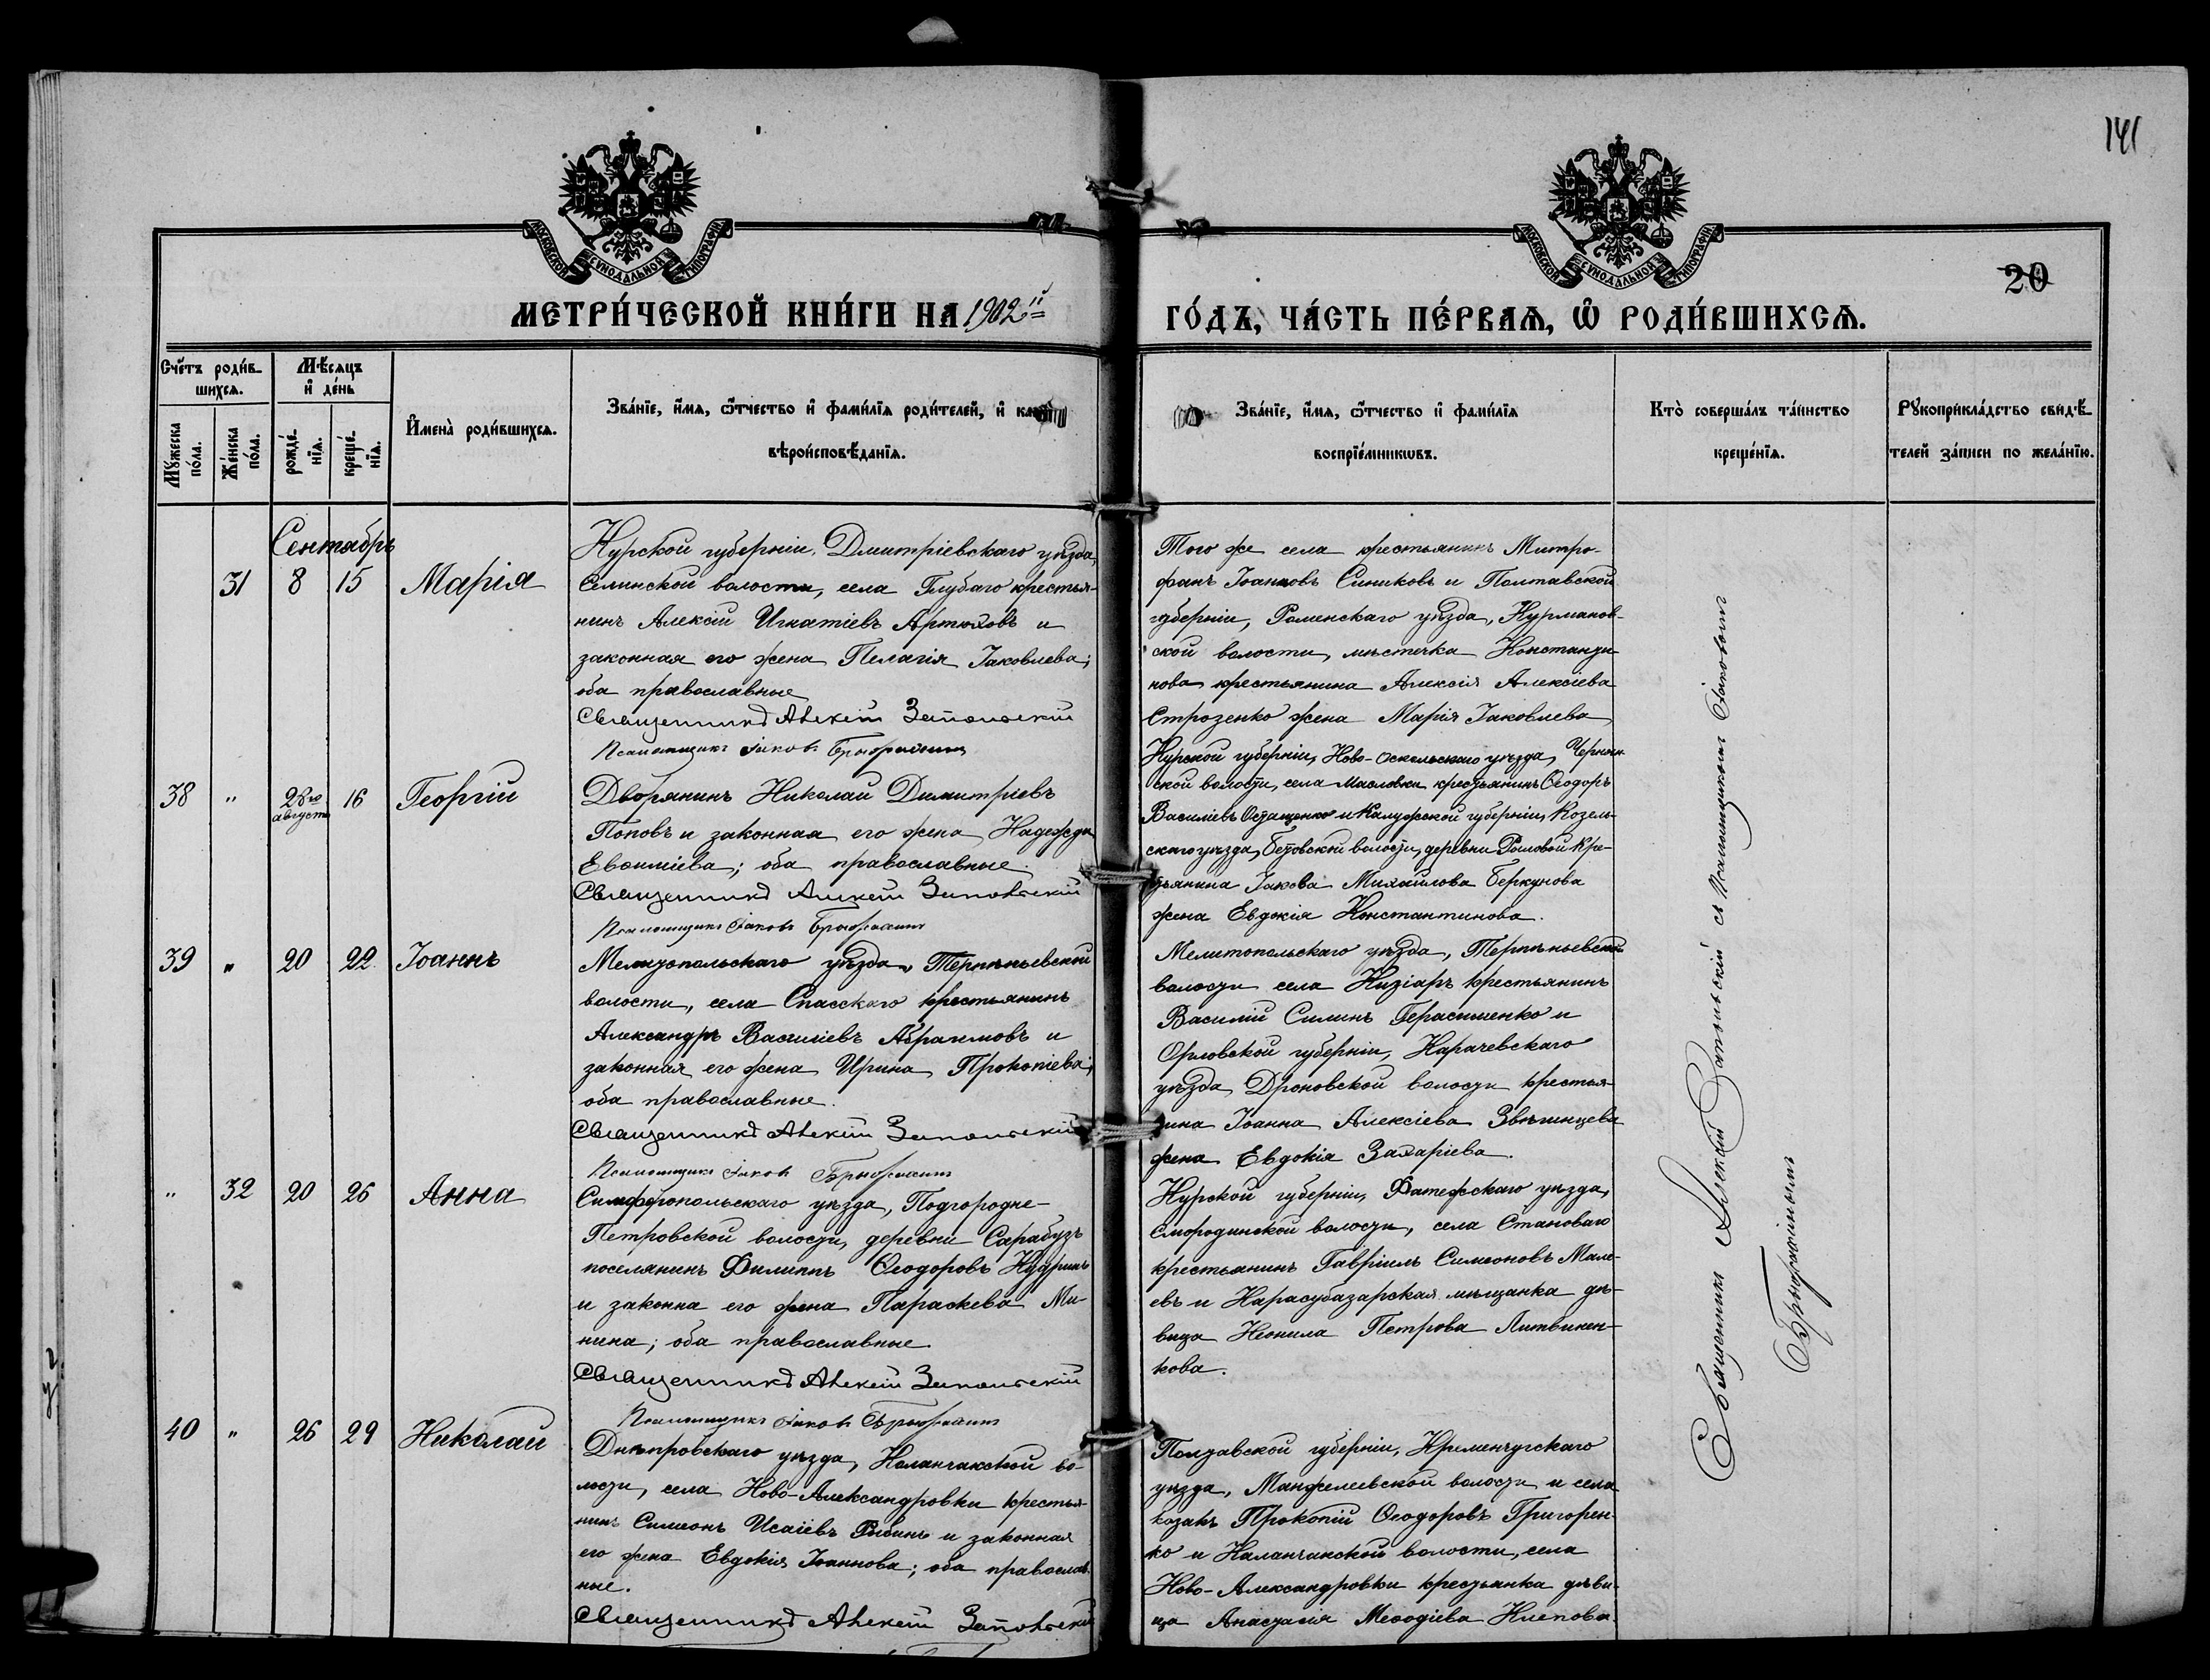 141
МОСКОВСКОЙ СѴНОДАЛЬНОЙ ТИПОГРАФІИ
МОСКОВСКОЙ СѴНОДАЛЬНОЙ ТИПОГРАФІИ
20
МЕТРИ́ЧЕСКОЙ КНИ́ГИ НА 1902й
ГО́ДЪ, ЧА́СТЬ ПЕ́РВАѦ, Ѡ҆ РОДИ́ВШИХСѦ.
Сче́тъ роди́в-
шихсѧ.
Мꙋ́жеска по́ла.
Же́нска по́ла.
Мѣ́сяцъ
и҆ де́нь
рожде́-
нїѧ.
креще́-
нїѧ.
И҆мена̀ роди́вшихсѧ.
Зва́нїе, и҆́мѧ, ѻ҆́тчество и҆ фами́лїѧ роди́телей, и҆
вѣроисповѣ́данїѧ.
Зва́нїе, и҆́мѧ, ѻ҆́тчество и҆ фами́лїѧ
воспрїе́мникѡвъ.
Кто̀ соверша́лъ та́инство
креще́нїѧ.
Рꙋкоприкла́дство свидѣ́-
телей за́писи по жела́нїю.
Сентябрь
31 8 15 Марія
Курской губерніи, Дмитріевскаго уѣзда,
Селинской волости, села Глубаго крестья-
нинъ Алексій Игнатіевъ Артюховъ и
законная его жена Пелагія Іаковлева;
оба православные
Священникъ Алексій Запольскій
Псаломщикъ Іаковъ
Того же села крестьянинъ Митро-
фанъ Іоанновъ Синиковъ и Полтавской
губерніи, Роменскаго уѣзда, Курманов-
ской волости, мѣстечка Констанди-
нова крестьянина Алексія Алексіева
Строзенко жена Марія Іаковлева
38 " 28го августа 16 Георгій
Дворянинъ Николай Димитріевъ
Поповъ и законная его жена Надежда
Евѳиміева; оба православные.
Священникъ Алексій Запольскій
Псаломщикъ Іаковъ
Курской губерніи, Ново-Оскольскаго уѣзда,
ской волости, села Масловки крестьянинъ Ѳеодоръ
Василіевъ Остащенко и Калужской губерніи, Козель-
скаго уѣзда, волости, деревни кре-
стьянина Іакова Михайлова Беркунова
жена Евдокія Константинова.
39 " 20 22 Іоаннъ
Мелитопольскаго уѣзда, Терпѣньевской
волости, села Спасскаго крестьянинъ
Александръ Василіевъ Абрагимовъ и
законная его жена Ирина Прокопіева;
оба православные.
Священникъ Алексій Запольскій
Псаломщикъ Іаковъ
Мелитопольскаго уѣзда, Терпѣньевской
волости села Кизіаръ крестьянинъ
Василій Силинъ Герасименко и
Орловской губерніи, Карачевскаго
уѣзда, Дроновской волости крестья-
нина Іоанна Алексіева Звѣгинцева
жена Евдокія Захаріева.
" 32 20 26 Анна
Симферопольскаго уѣзда, Подгородне-
Петровской волости, деревни Сарабузъ
поселянинъ Филиппъ Ѳеодоровъ Кудринъ
и законна его жена Параскева Ми-
нина; оба православные
Священникъ Алексій Запольскій
Псаломщикъ Іаковъ
Курской губерніи, Фатежскаго уѣзда,
Смородинской волости, села Становаго
крестьянинъ Гавріилъ Симеоновъ Мале-
евъ и Карасубазарская мѣщанка дѣ-
вица Неонила Петрова Литвинен-
кова.
40 " 26 29 Николай
Днѣпровскаго уѣзда, Каланчакской во-
лости, села Ново-Александровки крестья-
нинъ Симеонъ Исаіевъ Рыбинъ и законная
его жена Евдокія Іоаннова; оба православ-
ные.
Священникъ Алексій Запольскій
Полтавской губерніи, Кременчугскаго
уѣзда, Манжелеевской волости и села
казакъ Прокопій Ѳеодоровъ Григорен-
ко и Каланчакской волости, села
Ново-Александровки крестьянка дѣви-
ца Анастасія Меѳодіева Клепова.
Священникъ Алексій Запольскій съ Псаломщикомъ Іаковомъ